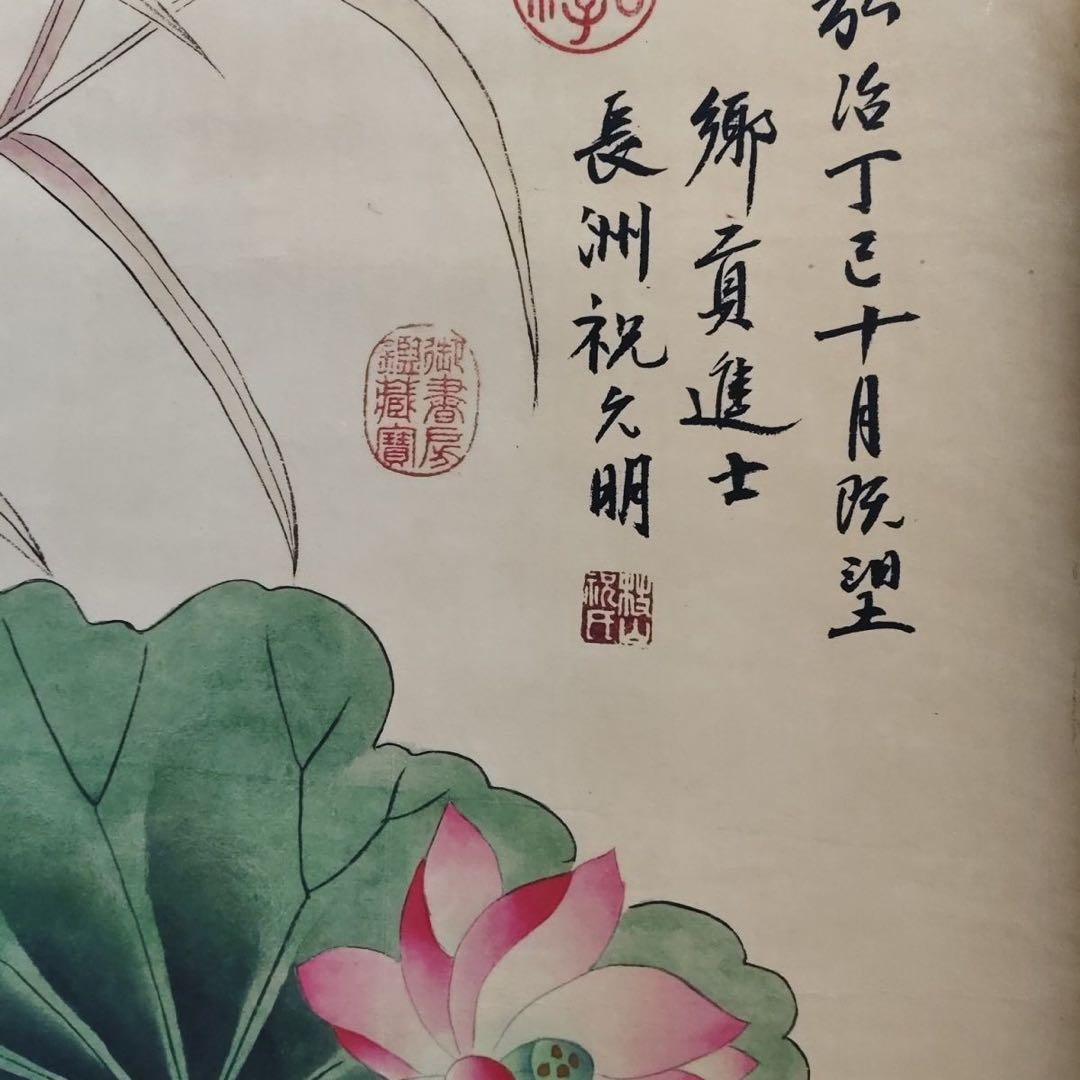 弘治丁巳十月既望
鄉貢進士
長洲祝允明
御書房
鑑藏寶
枝山
祝氏